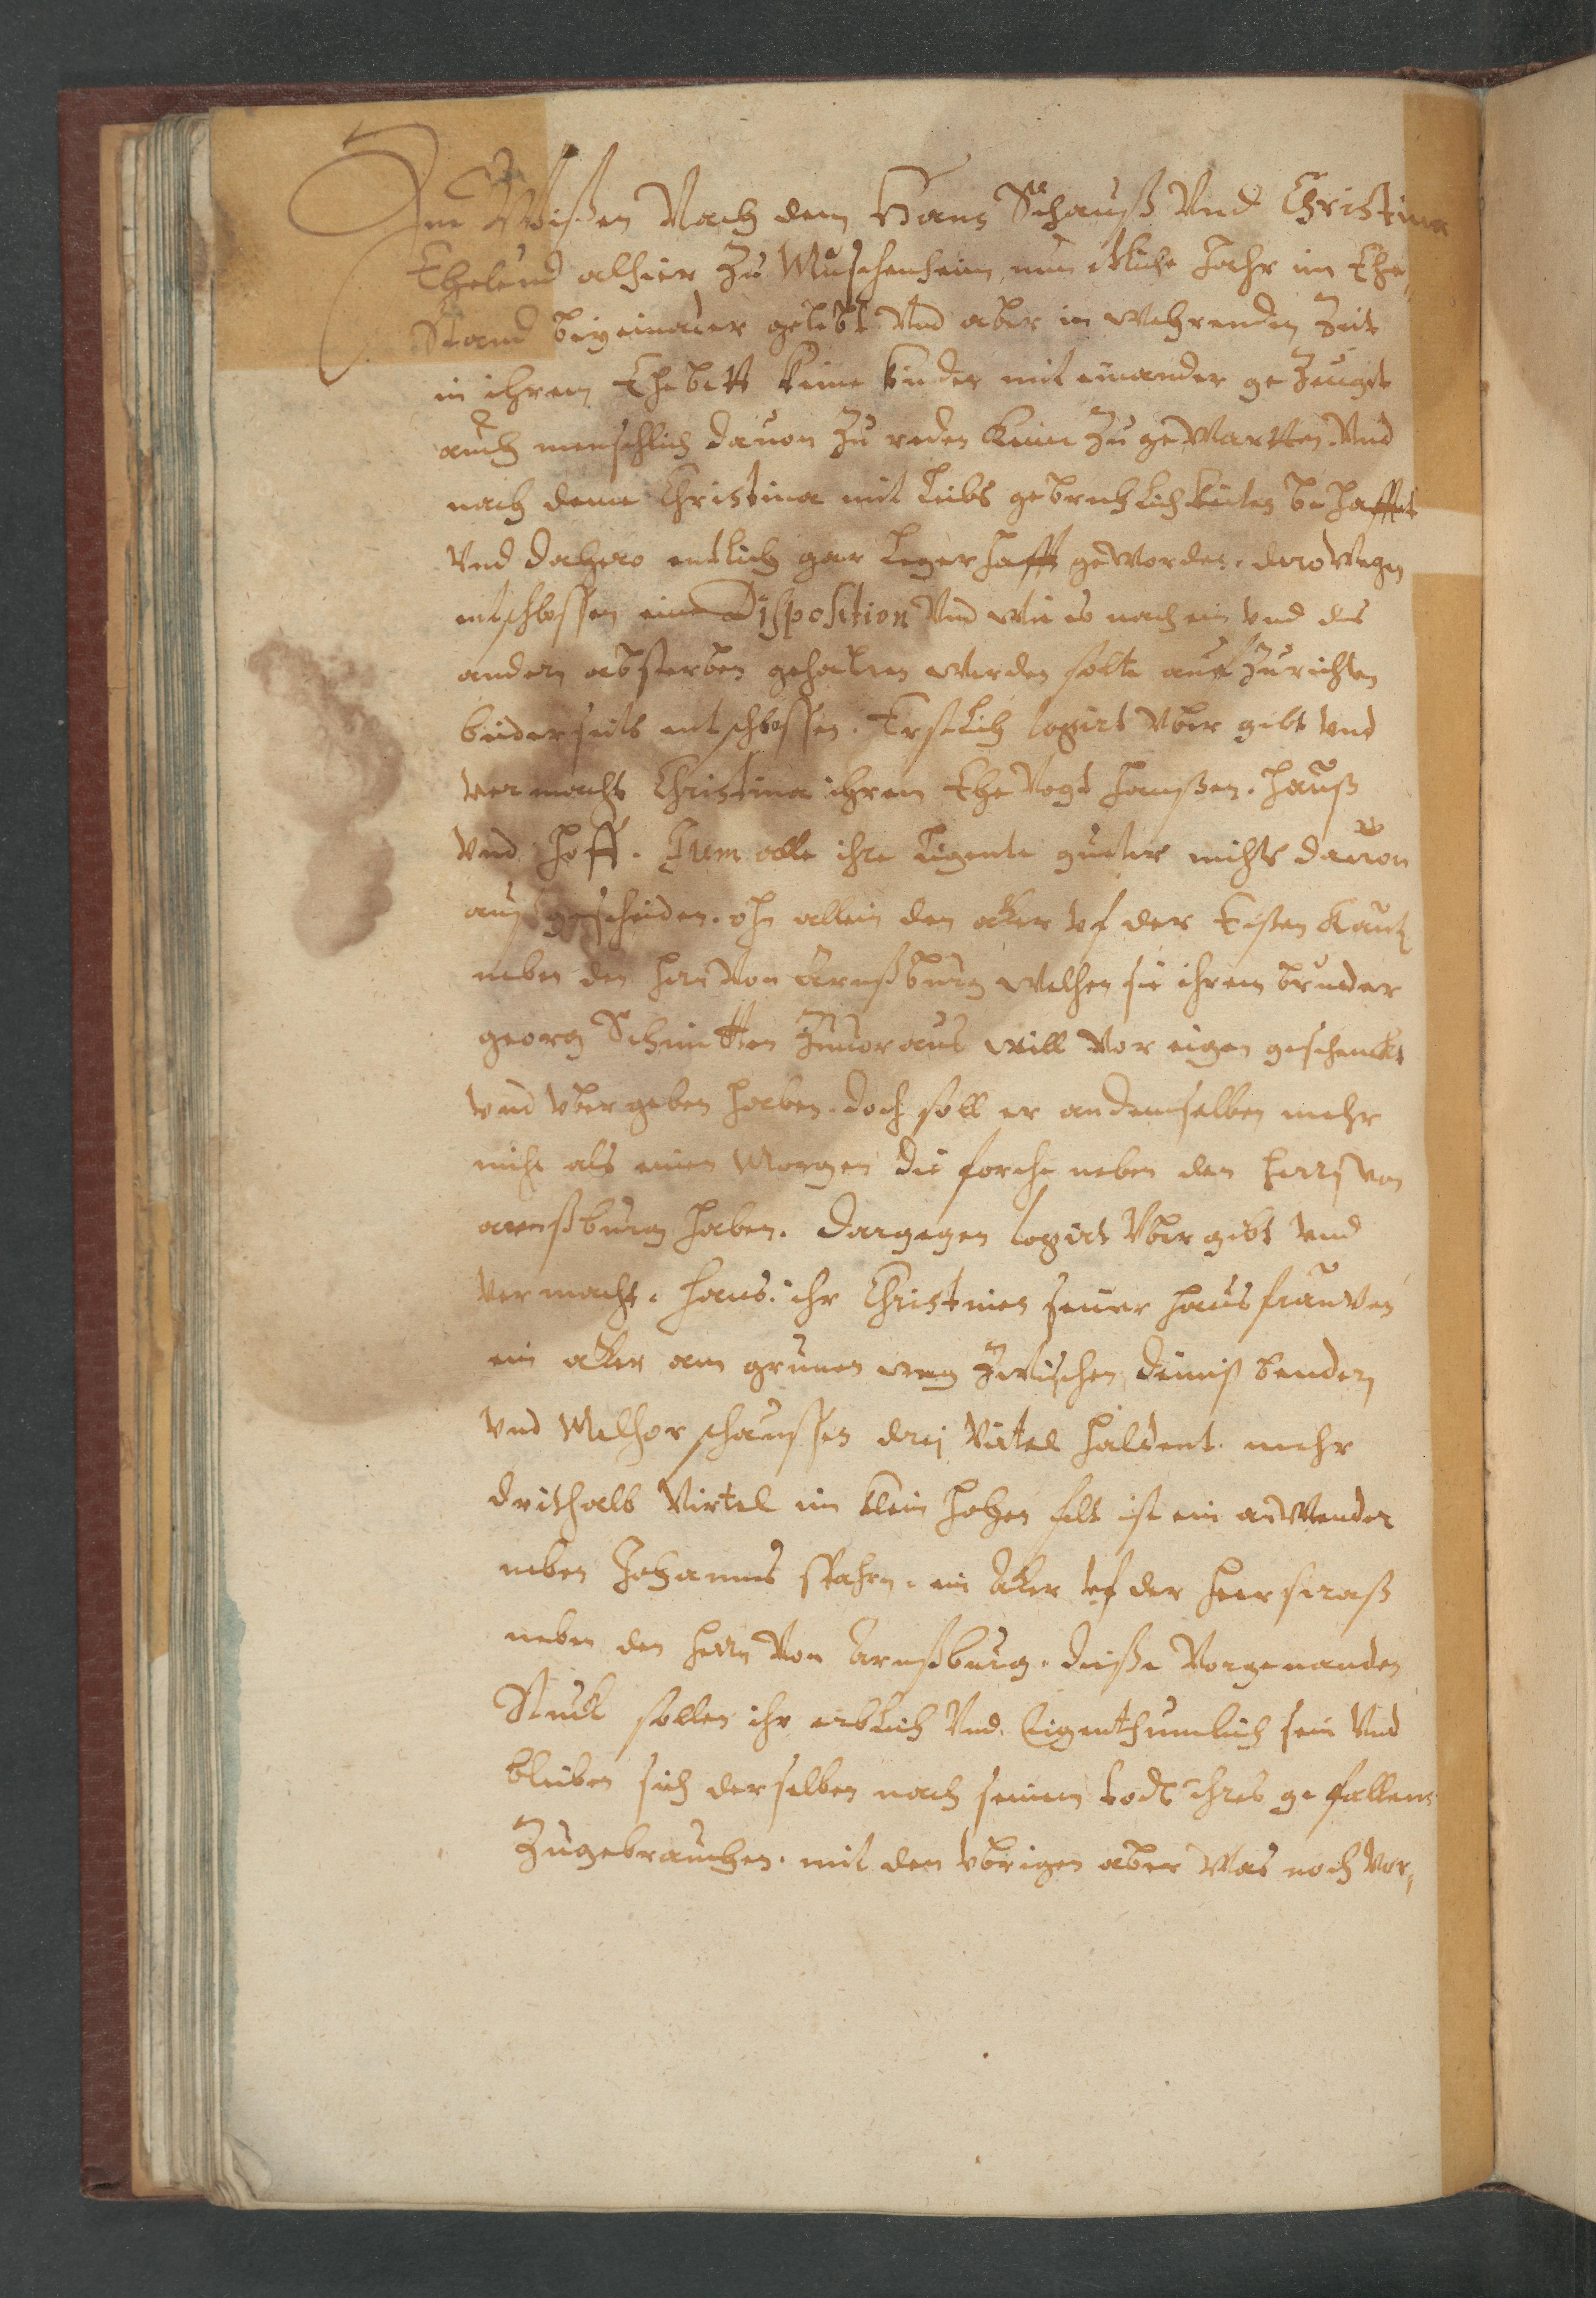 Zue Wissen Nach dem Hans Schauß Vnd Christina
Eheleud alhier Zu Muschenheim nun etliche Jahr im Ehe„
Stand beyeinander gelebt Vnd aber in wehrenden Zeit
in ihrem Ehebett keine kinder mit einander gezeugt
auch menschlich dauon Zu reden keine Zu gewartten. Vnd
nach deme Christina mit leibs gebrechlichkeiten behafftet
Vnd dahero entlich gar legerhafft geworden. derowegen
entschlossen eine Disposition Vnd wie es nach ein vnd des
andern absterben gehalten werden solte auffzurichten
beiderseits entschlossen. Erstlich legirt Vber gibt vnd
vermacht Christina ihrem EheVogt Hanßen. Hauß
vnd Hoff. Item alle ihre ligente gueter nichts dauon
ausgescheiden. ohn allein den aker vf der Eisten Kautz
neben den Herrn Von Arnßburg welchen sie ihrem bruder
georg Schmitten Zuuoraus will vor eigen geschenckt
vnd vbergeben haben. doch soll er an demselben mehr
nicht als einen Morgen die forche neben den Herrn von
arnßburg haben. dargegen legirt Vbergibt vnd
vermacht. Hans. ihr Christinen seiner hausfrauwen
ein aker am grunen weg Zwischen benders
vnd Melchor schaussen drej Virtel haldent. mehr
drithalb Virtel im klein hohen felt ist ein anwender
neben Johannes spahrn. ein Aker vf der Heerstraß
neben den Herrn Von Arnßburg. diesse Vorgenanden
Stuck sollen ihr erblich Vnd Eigenthumlich sein Vnd
bleiben sich derselben nach seinem todt ihres gefallens
Zugebrauchen. mit den vbrigen aber was noch Vor„